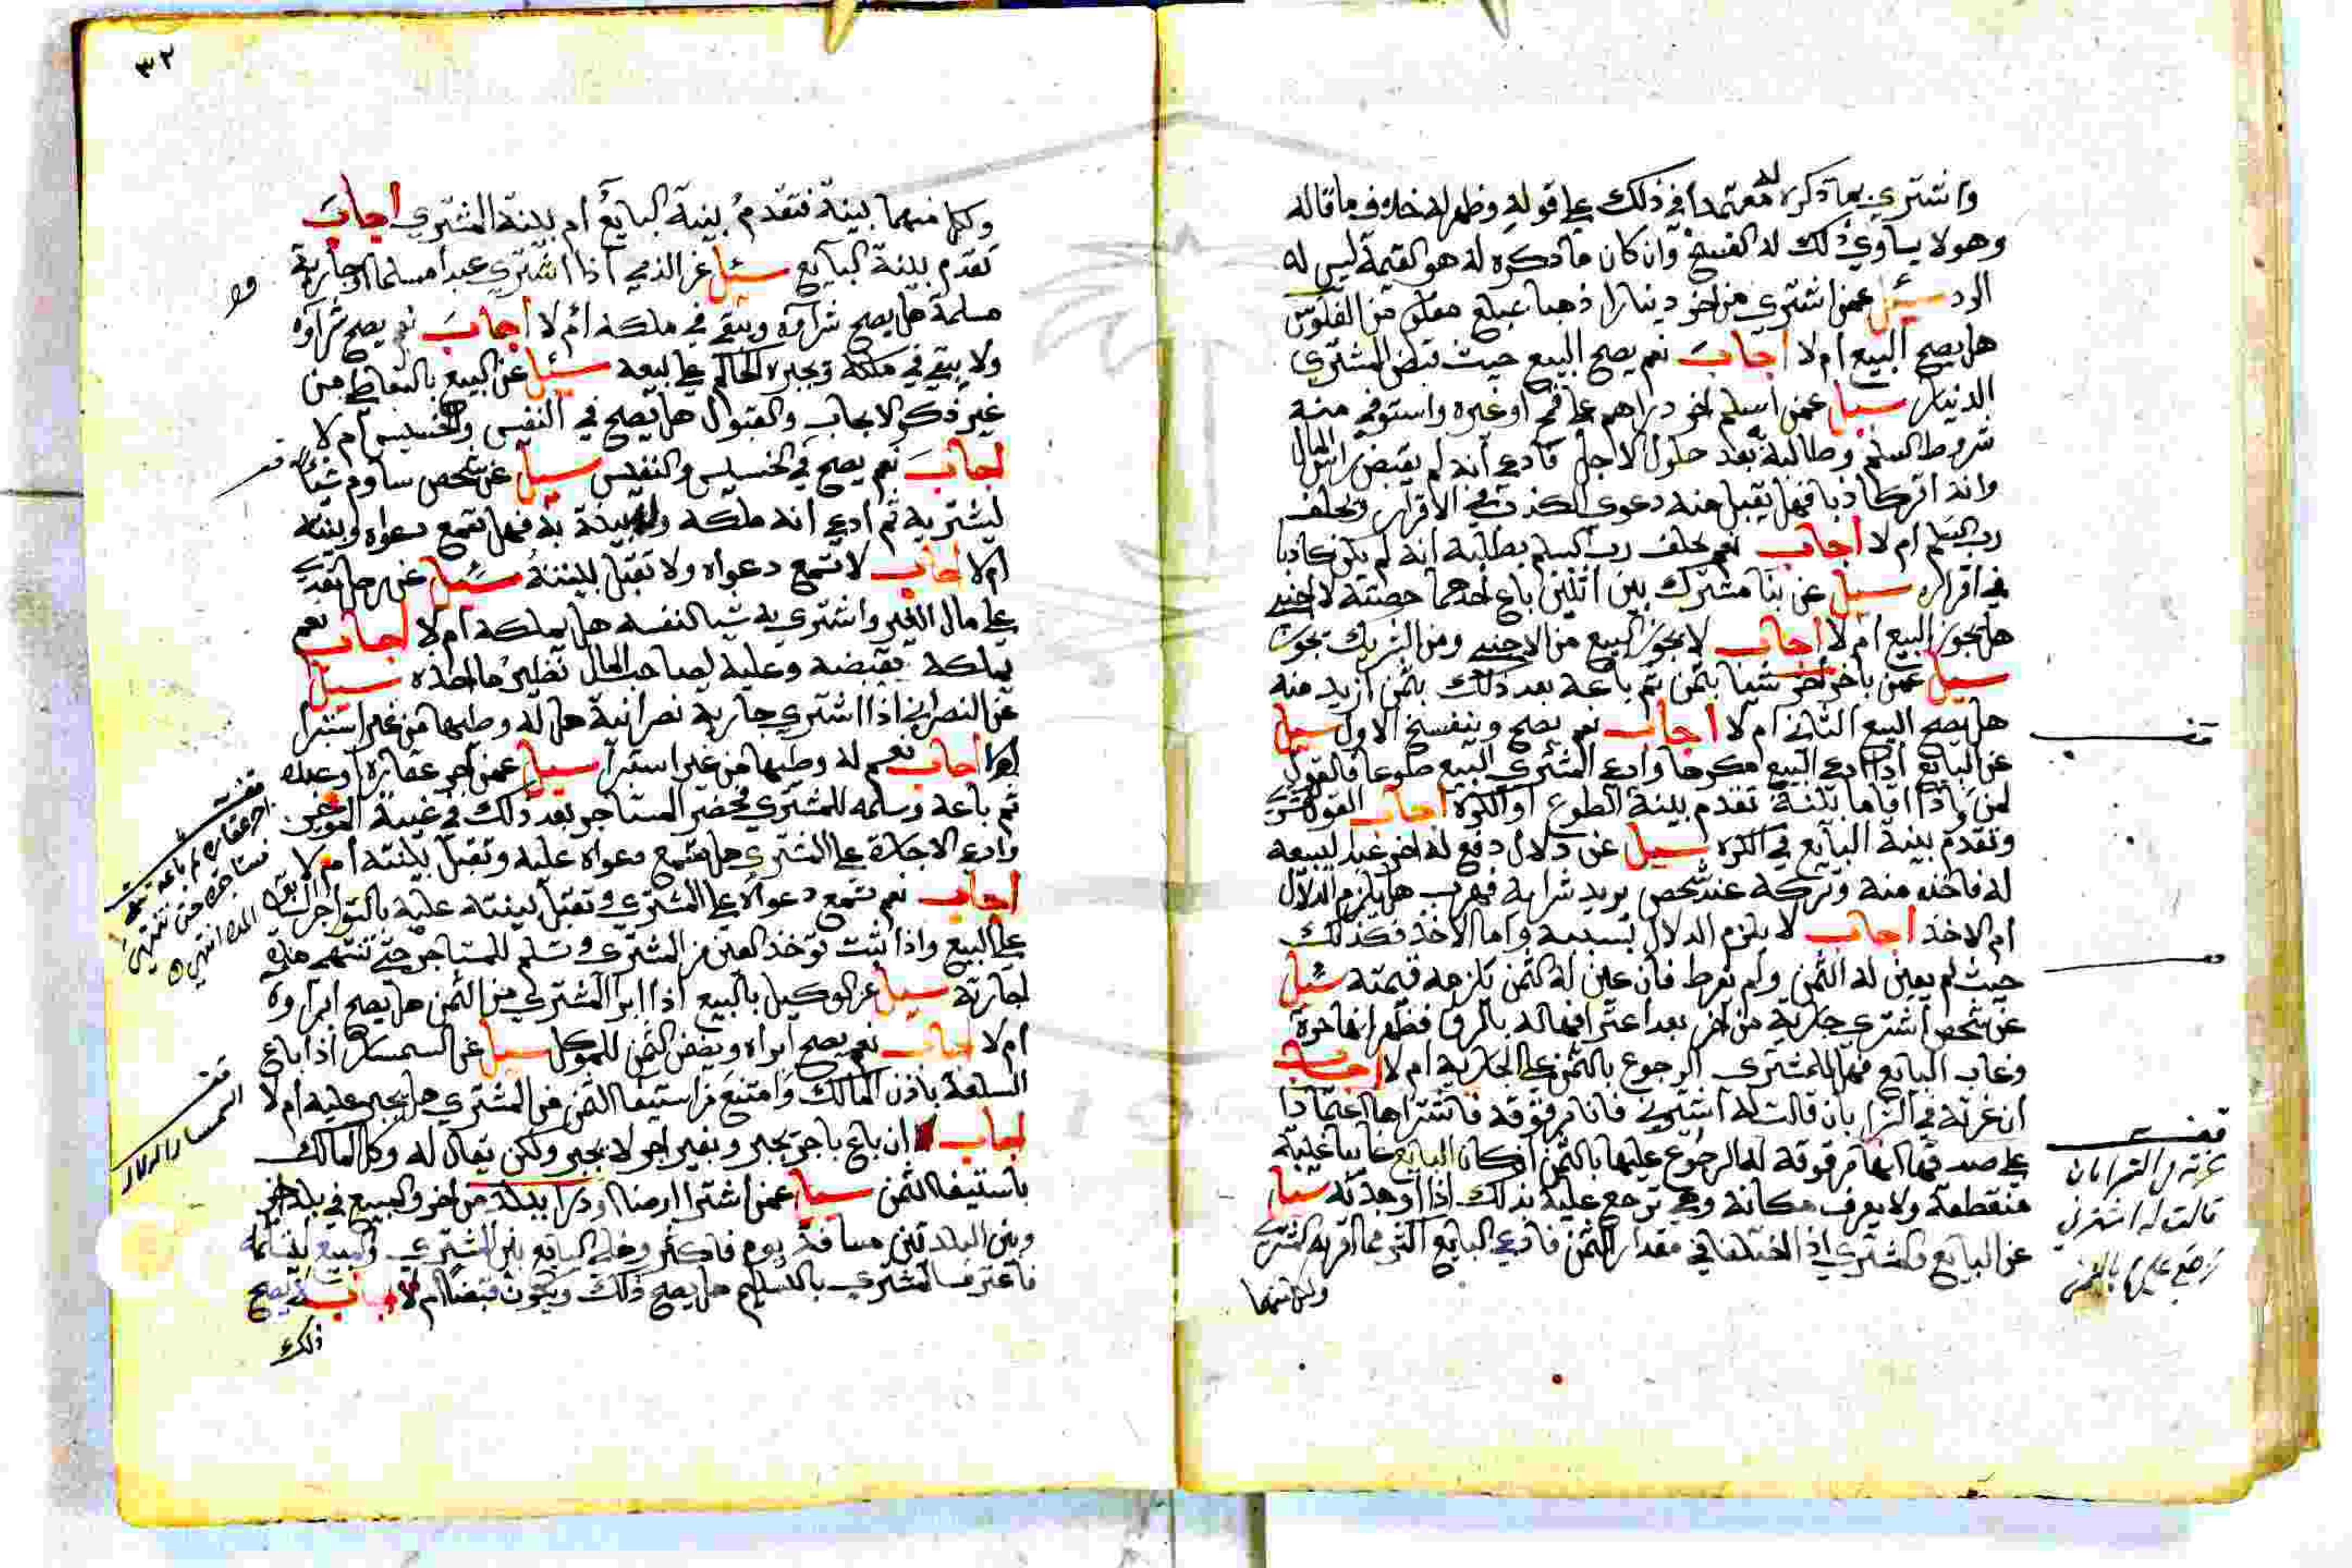 واشتري بما ذكره له معتمدا في ذلك علي قوله وظهر له خلاف ما قاله
وهو لا يساوي ذلك له الفسخ وان كان ما ذكره له هو القيمة ليس له
الرد سئل عمن اشتري من اخر دينارا ذهبا بمبلغ معلوم من الفلوس
هل يصح البيع ام لا اجاب نعم يصح البيع حيث قبض المشتري
الدينار سيل عمن اسلم اخر دراهم علي قمح او غيره واستوفي منه
شروط السلم وطالبه بعد حلول الاجل فادعي انه لم يقبض راس المال
وانه اقر كاذبا فهل يقبل منه دعوي الكذب في الاقرار ويحلف
رب السلم ام لا اجاب نعم يحلف رب السلم بطلبه انه لم يكن كاذبا
في اقراره سيل عن بنا مشترك بين اثنين باع احدهما حصته لاجنبي
هل يجوز البيع ام لا اجاب لا يجوز البيع من الاجنبي ومن الشريك يجوز
سيل عمن باخر اخر شيا بثمن ثم باعه بعد ذلك بثمن ازيد منه
هل يصح البيع الثاني ام لا اجاب نعم يصح وينفسخ الاول سيل
عن البايع اذا ادعي البيع مكرها وادعي المشتري البيع طوعا فالقول
لمن واذا اقاما بينة تقدم بينة الطوع او الكره اجاب القول
وتقدم بينة البايع في الكره سيل عن دلال دفع له اخر عبدا ليبيعه
له فاخذه منه وتركه عند شخص يريد شرايه فهرب هل يلزم الدلال
ام الاخذ اجاب لا يلزم الدلال بسببه واما الاخذ فكذلك
حيث لم يعين له الثمن ولم يفرط فان عين له الثمن تلزمه قيمته سئيل
عن شخص اشتري جارية من اخر بعد اعترافها له بالرق فظهر انها حرة
وغاب البايع فهل للمشتري الرجوع بالثمن علي الجارية ام لا اجاب
ان غرته في الشرا بان قالت له اشتريني فانا مرقوقة فاشتراها اعتمادا
علي صدقها انها مرقوقة له الرجوع عليها بالثمن ان كان البايع غايبا غيبة
منقطعة ولا يعرف مكانه وهي ترجع عليه بذلك اذا وجدته سئيل
عن البايع والمشتري اذا اختلفا في مقدار الثمن فادعي البايع اكثر مما اقر به المشتري
ولكل منهما
قف
قف
غرته في الشرا بان
قالت له اشتريني
ترجع عليها بالثمن
٣٢
ولكل منهما بينة فتقدم بينة البايع ام بينة المشتري اجاب
تقدم بينة البايع سئل عن الذمي اذا اشتري عبدا مسلما او جارية
مسلمة هل يصح شراؤه ويبقي في ملكه ام لا اجاب نعم يصح شراؤه
ولا يبقي في ملكه ويجبره الحاكم علي بيعه سئيل عن البيع بالتعاطي من
غير ذكر الايجاب والقبول هل يصح في النفيس والخسيس ام لا
اجاب نعم يصح في الخسيس والنفيس سيل عن شخص ساوم شيئا
ليشتريه ثم ادعي انه ملكه وله بينة به فهل تسمع دعواه وبينته
ام لا اجاب لا تسمع دعواه ولا تقبل بينته سئيل عن رجل تعدي
علي مال الغير واشتري به شيا لنفسه هل يملكه ام لا اجاب نعم
يملكه بقبضه وعليه لصاحب المال نظير ما اخذه سيل
عن النصراني اذا اشتري جارية نصرانية هل له وطيها من غير استبرا
ام لا اجاب نعم له وطيها من غير استبرا سيل عمن اجر عقاره او عبده
ثم باعه وسلمه للمشتري فحضر المستاجر بعد ذلك في غيبة الموجر
وادعي الاجارة علي المشتري هل تسمع دعواه عليه وتقبل بينته ام لا
اجاب نعم تسمع دعواه علي المشتري وتقبل بينته عليه بالتواجر السابق
علي البيع واذا ثبت توخذ العين من المشتري وتسلم للمستاجر حتي تنتهي مدة
اجارته سيل عن الوكيل بالبيع اذا ابرا المشتري من الثمن هل يصح ابراوه
ام لا اجاب نعم يصح ابراه ويضمن الثمن للموكل سيل عن السمسار اذا باع
السلعة باذن المالك وامتنع من استيفا الثمن من المشتري هل يجبر عليه ام لا
اجاب ان باع باجر يجبر وبغير اجر لا يجبر ولكن يقال له وكل المالك
باستيفا الثمن سيل عمن اشترا ارضا او دارا ببلدة من اخر والمبيع في بلد اخر
وبين البلدتين مسافة يوم فاكثر وخلي البايع بين المشتري والمبيع ليتسلمه
فاعترف المشتري بالتسليم هل يصح ذلك ويكون قبضا ام لا اجاب نعم يصح
ذلك
قف
اجر عقاره ثم باعه
قف
السمسار والدلال